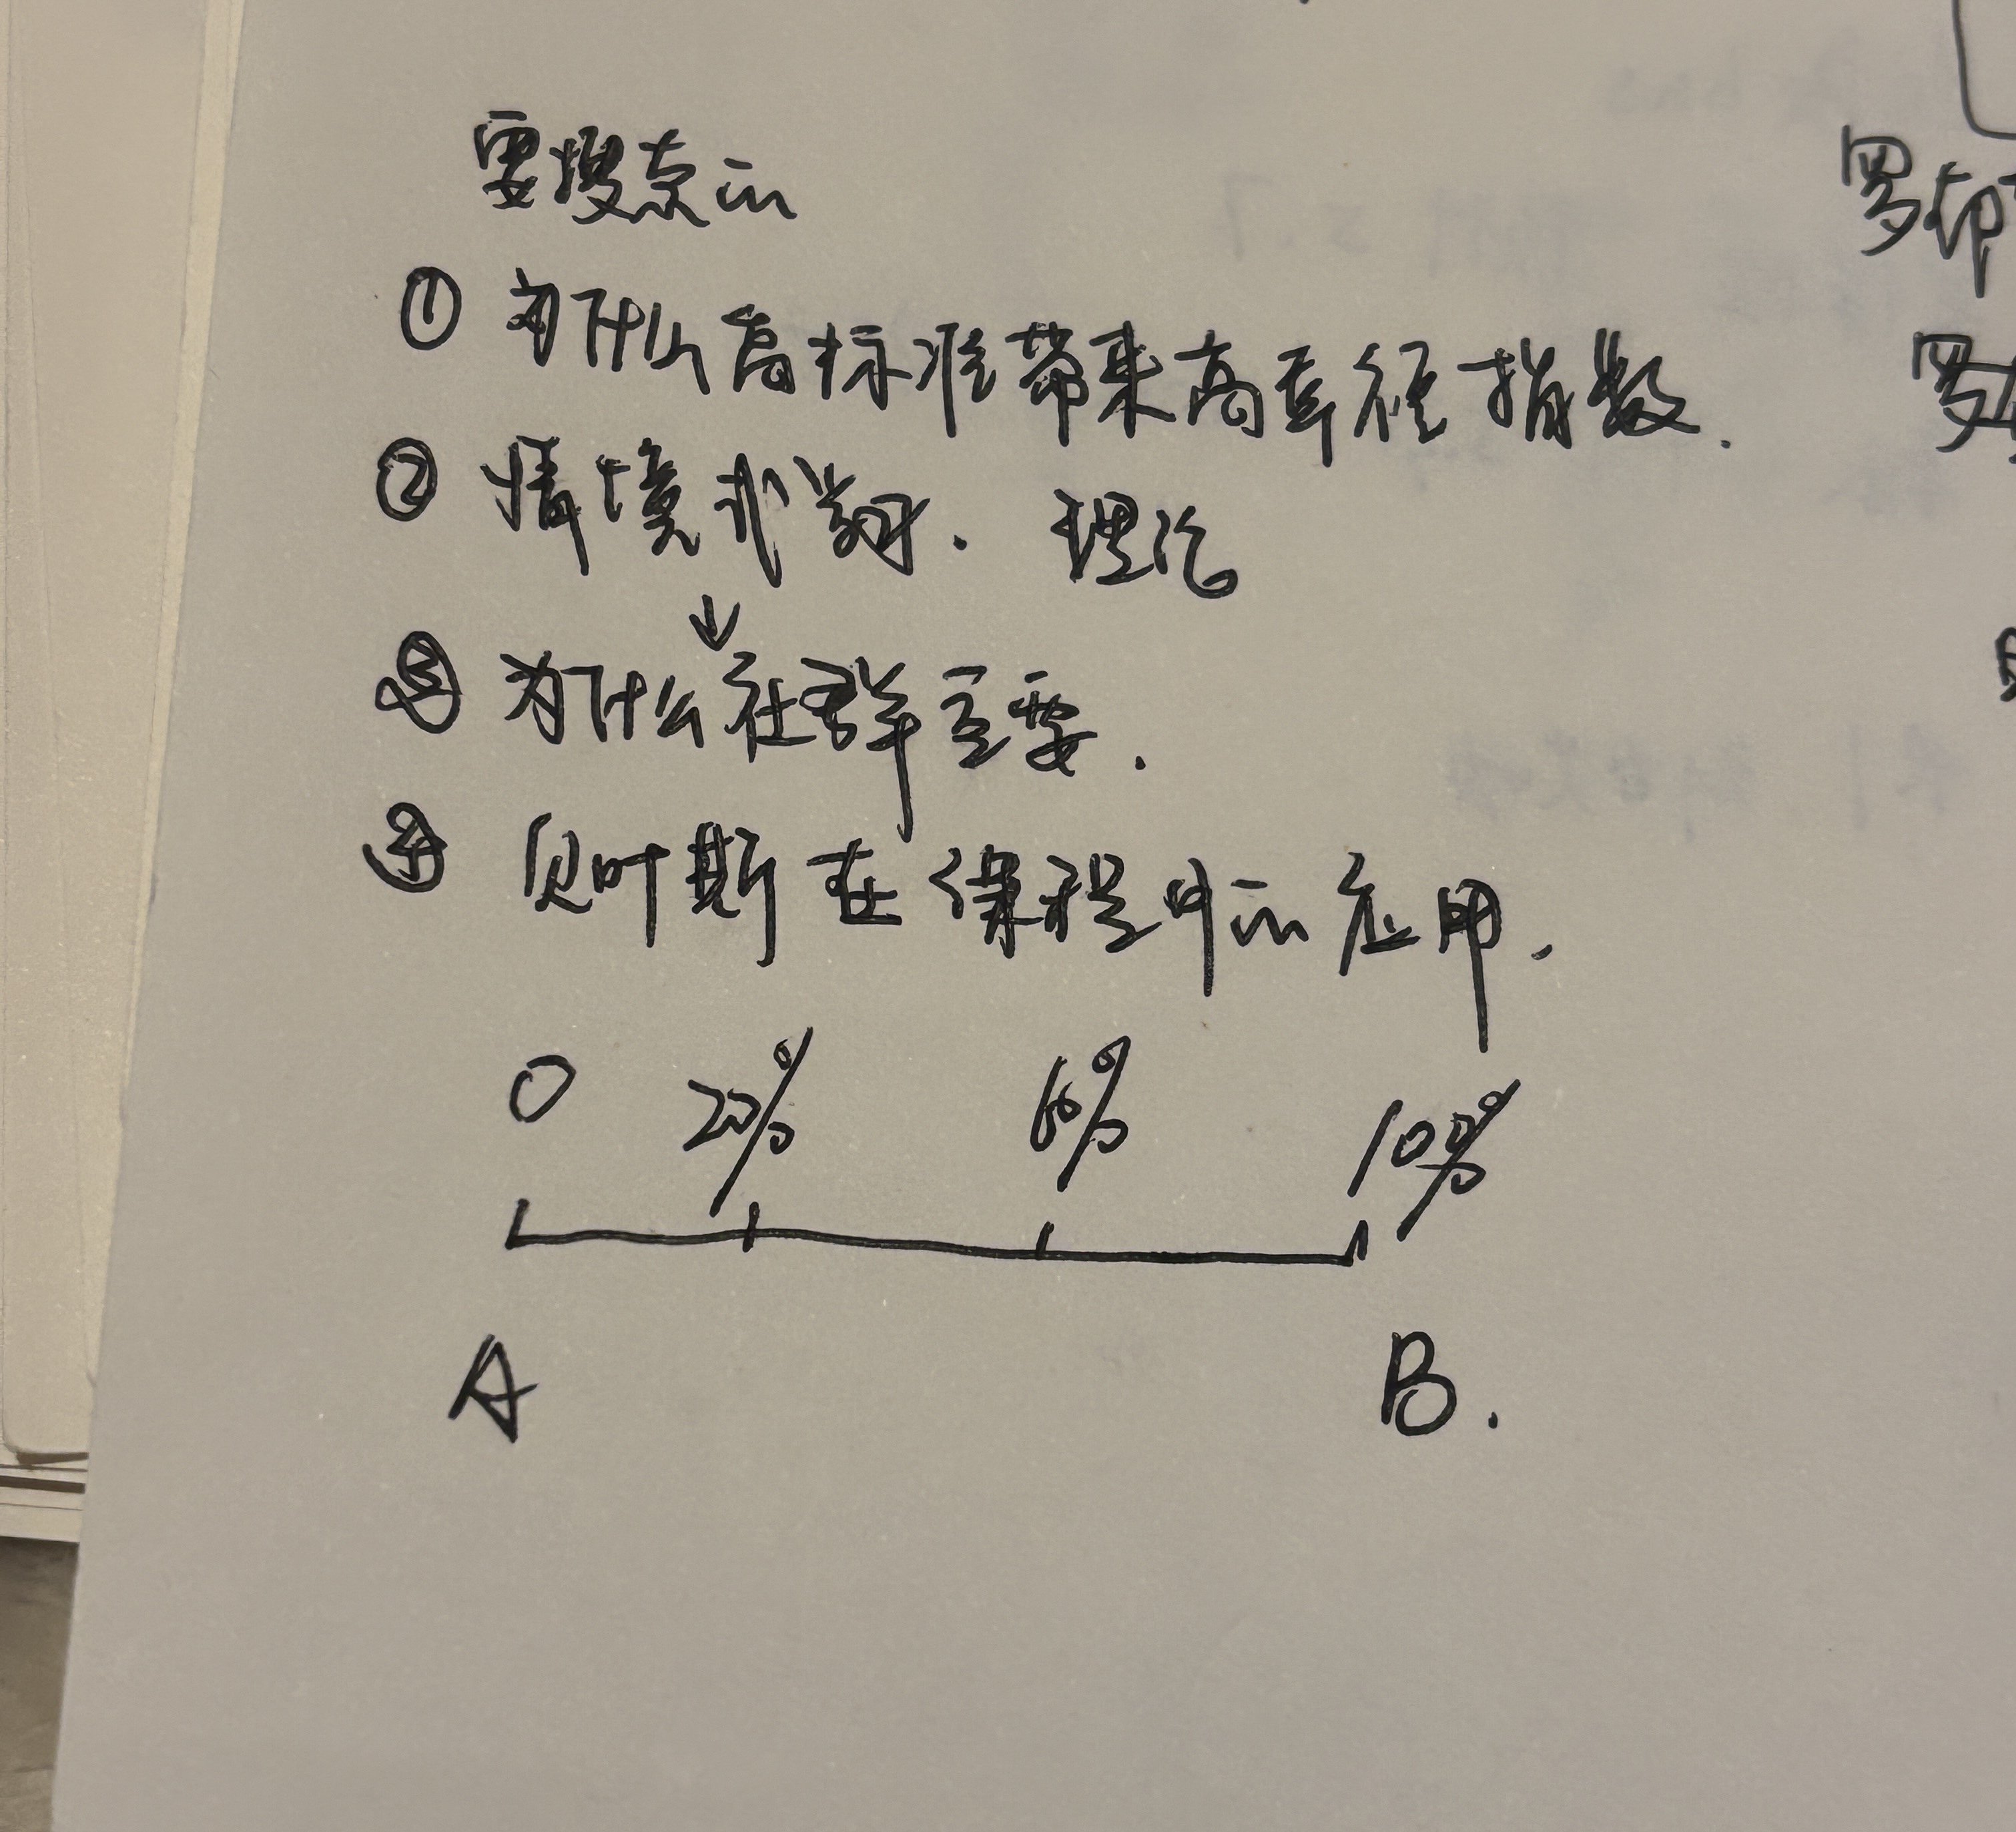 要搜索的
① 为什么高标准带来高幸福指数.
② 情境式学习. 理论
↓
③ 为什么社群重要.
④ 贝叶斯在课程中的应用.
0 20% 60% 100%
A B.
罗
罗